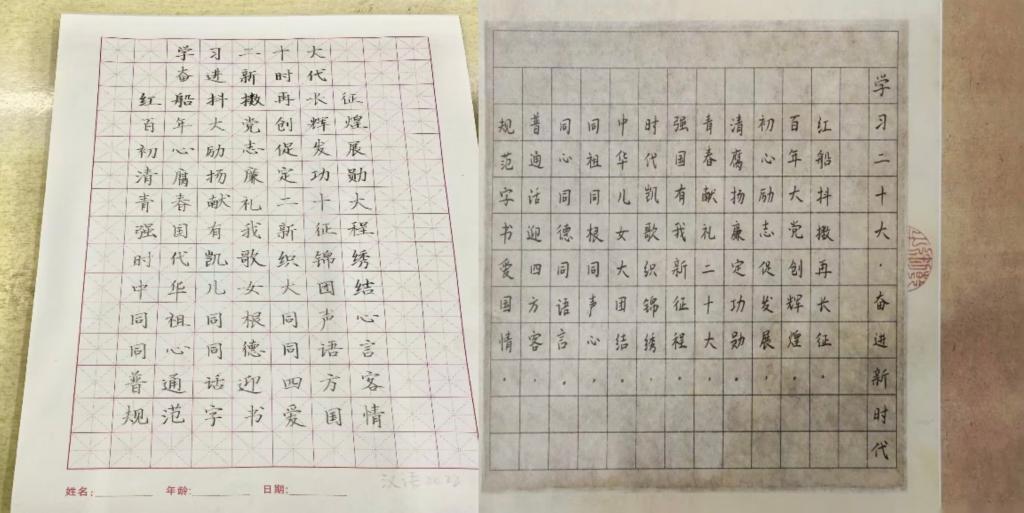 学习二十大
奋进新时代
红船抖擞再长征
百年大党创辉煌
初心励志促发展
清腐扬廉定功勋
青春献礼二十大
强国有我新征程
时代凯歌织锦绣
中华儿女大团结
同祖同根同声心
同心同德同语言
普通话迎四方客
规范字书爱国情
姓名: 年龄: 日期:
学习二十大·奋进新时代
红船抖擞再长征,
百年大党创辉煌.
初心励志促发展,
清腐扬廉定功勋.
青春献礼二十大,
强国有我新征程.
时代凯歌织锦绣,
中华儿女大团结.
同祖同根同声心,
同心同德同语言.
普通话迎四方客,
规范字书爱国情.